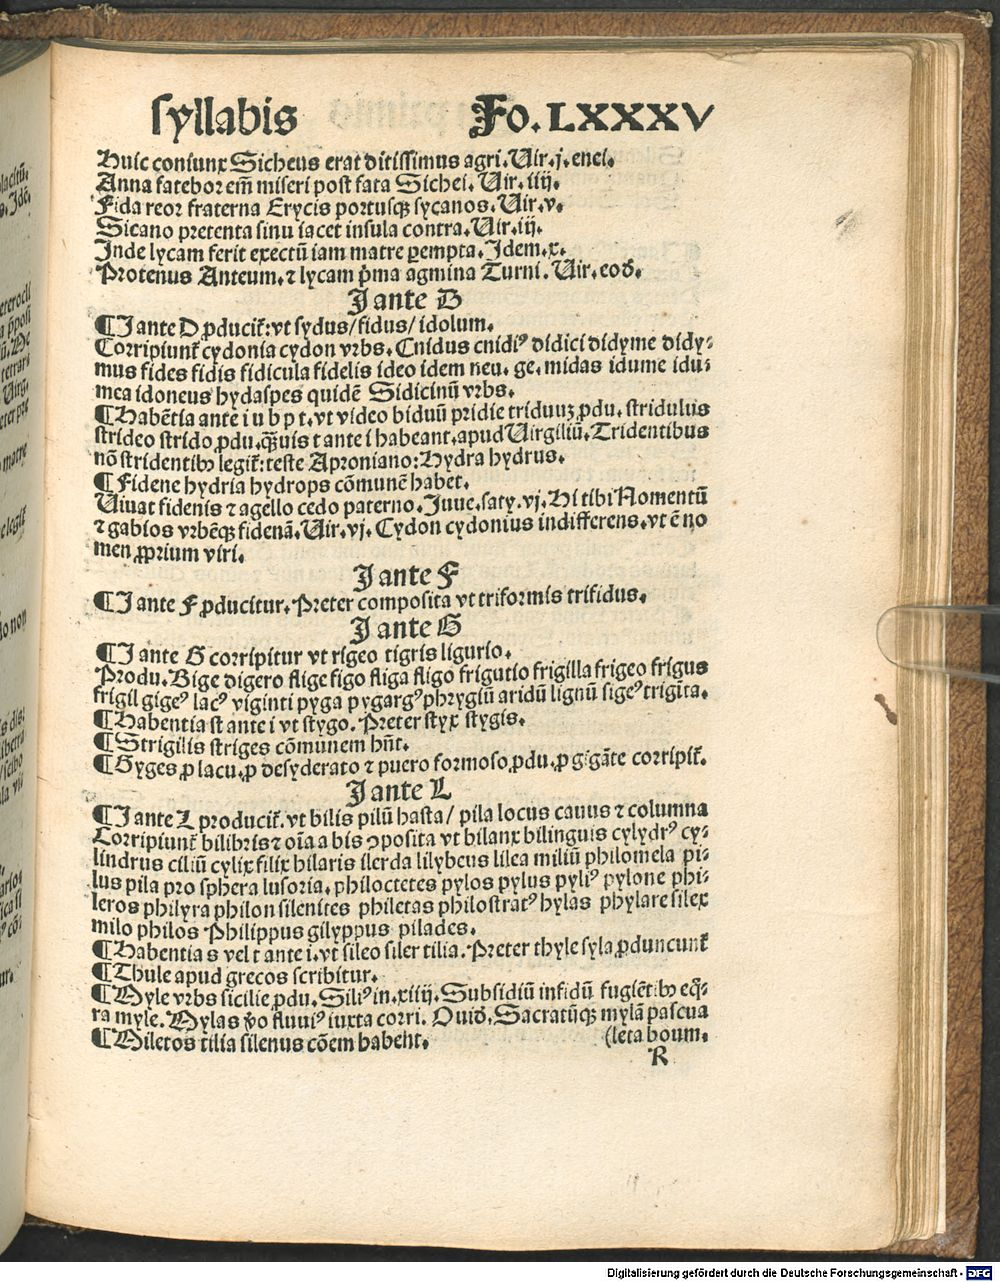 syllabis Fo. LXXXV
Huic coniunx Sicheus erat ditissimus agri. Uir. j. enei.
Anna fatebor em̃ miseri post fata Sichei. Uir. iiij.
Fida reor fraterna Erycis portusqꝫ sycanos. Uir. v.
Sicano pretenta sinu iacet insula contra. Uir. iij.
Inde lycam ferit exectũ iam matre ꝑempta. Idem. x.
Protenus Anteum. ⁊ lycam p̃ma agmina Turni. Uir. eod̃.
I ante D
¶ I ante D ꝓducit̃: vt sydus/ fidus/ idolum.
Corripiunt̃ cydonia cydon vrbs. Cnidus cnidiꝰ didici didyme didy⸗
mus fides fidis fidicula fidelis ideo idem neu. ge. midas idume idu⸗
mea idoneus hydaspes quidẽ Sidicinũ vrbs.
¶ Habẽtia ante i u b p t. vt video biduũ pridie triduuꝫ ꝓdu. stridulus
strideo strido ꝓdu. qꝫuis t ante i habeant. apud Uirgiliũ. Tridentibus
nõ stridentibꝰ legit̃: teste Aproniano: Hydra hydrus.
¶ Fidene hydria hydrops cõmunẽ habet.
Uiuat fidenis ⁊ agello cedo paterno. Juue. saty. vj. Hi tibi Nomentũ
⁊ gabios vrbẽqꝫ fidenã. Uir. vj. Cydon cydonius indifferens. vt ẽ no
men ꝓprium viri.
I ante F
¶ I ante F ꝓducitur. Preter composita vt triformis trifidus.
I ante G
¶ I ante G corripitur vt rigeo tigris ligurio.
Produ. Bige digero flige figo fliga fligo frigutio frigilla frigeo frigus
frigil gigeꝰ lacꝰ viginti pyga pygargꝰ phrygiũ aridũ lignũ sigeꝰ trigĩta.
¶ Habentia st ante i vt stygo. Preter styx stygis.
¶ Strigilis striges cõmunem hñt.
¶ Gyges ꝓ lacu. ꝓ desyderato ⁊ puero formoso ꝓdu. ꝓ gigãte corripit̃.
I ante L
¶ I ante L producit̃. vt bilis pilũ hasta/ pila locus cauus ⁊ columna
Corripiunt̃ bilibris ⁊ oĩa a bis ꝯposita vt bilanx bilinguis cylydrꝰ cy⸗
lindrus ciliũ cylix filix hilaris ilerda lilybeus lilea miliũ philomela pi⸗
lus pila pro sphera lusoria. philoctetes pylos pylus pyliꝰ pylone phi⸗
leros philyra philon silenites philetas philostratꝰ hylas phylare silex
milo philos Philippus gilyppus pilades.
¶ Habentia s vel t ante i. vt sileo siler tilia. Preter thyle syla ꝓduncunt̃
¶ Thule apud grecos scribitur.
¶ Myle vrbs sicilie ꝓdu. Siliꝰ in. xiiij. Subsidiũ infidũ fugiẽtibꝰ eq̃⸗
ra myle. Mylas v̾o fluuiꝰ iuxta corri. Ouid̃. Sacratũqꝫ mylã pascua
¶ Miletos tilia silenus cõem habent. (leta boum.
R
Digitalisierung gefördert durch die Deutsche Forschungsgemeinschaft - DFG